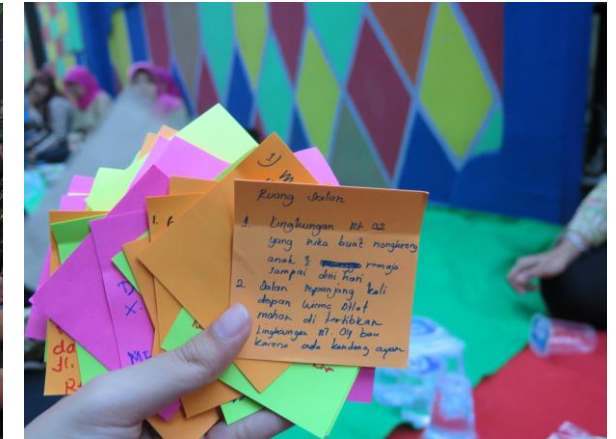 Ruang Jalan
1. Lingkungan Rt 02
yang suka buat nongkrong
anak 2 remaja
sampai dini hari
2. Jalan sepanjang kali
depan
mohon di tertibkan
Lingkungan RT. 04 bau
karena ada kandang ayam
1)
1.
da
Jl.